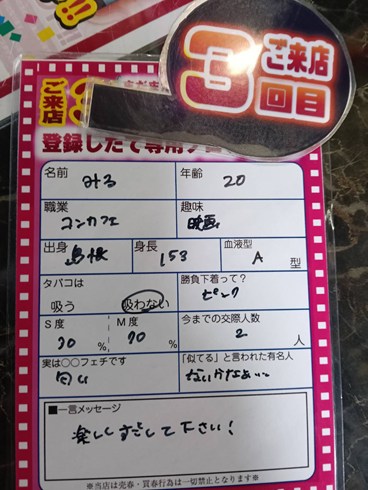 ご来店
3回目
ご来店
登録したて専用
名前 みる 年齢 20
職業 コンカフェ 趣味 映画
出身 島根 身長 153 血液型 A 型
タバコは 吸う 吸わない
勝負下着って? ピンク
S度 70 % M度 70 %
今までの交際人数 2 人
実は○○フェチです 匂い
「似てる」と言われた有名人 ないかなぁ…
■一言メッセージ
楽しくすごして下さい!
※当店は売春・買春行為は一切禁止となります※